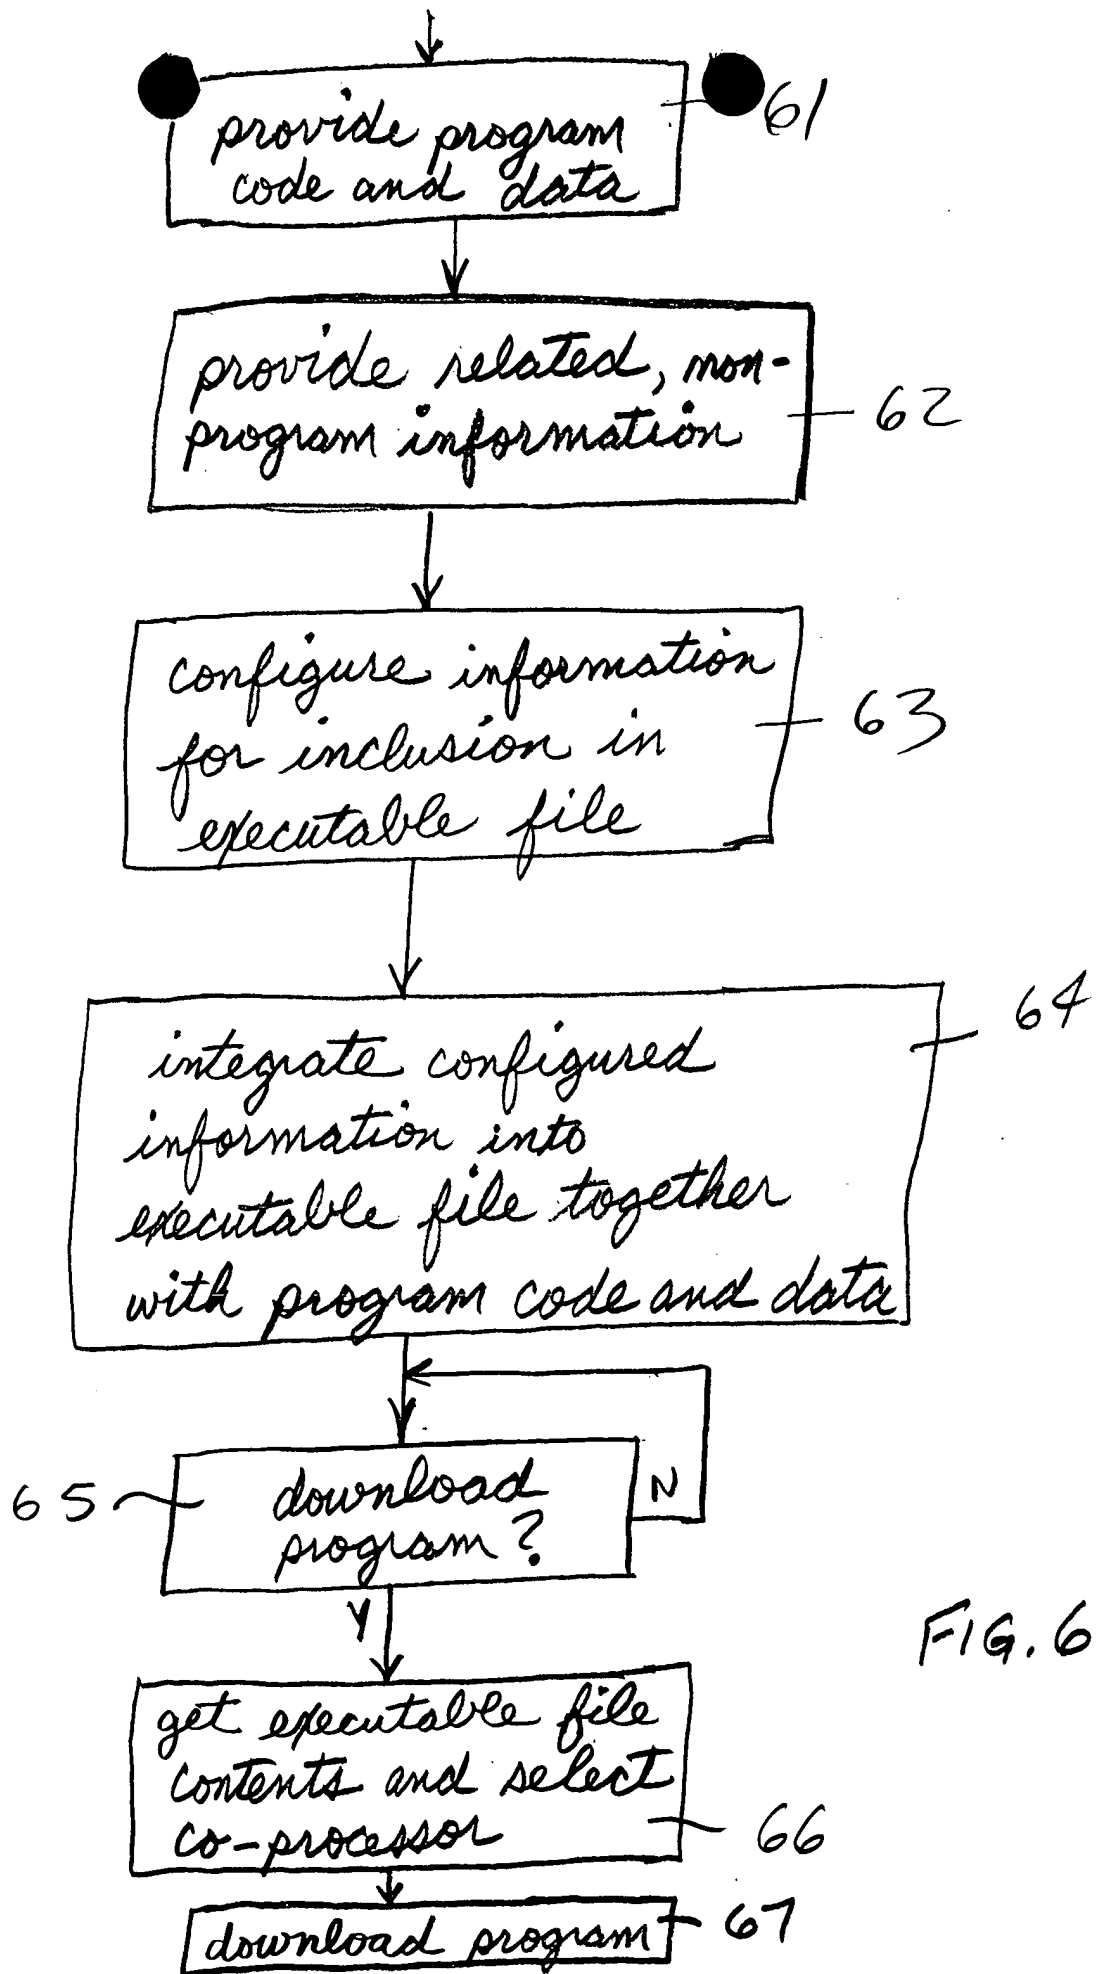 provide program
code and data
61
provide related, non-
program information
62
configure information
for inclusion in
executable file
63
64
integrate configured
information into
executable file together
with program code and data
65
download
program?
N
Y
FIG. 6
get executable file
contents and select
co-processor
66
download program
67